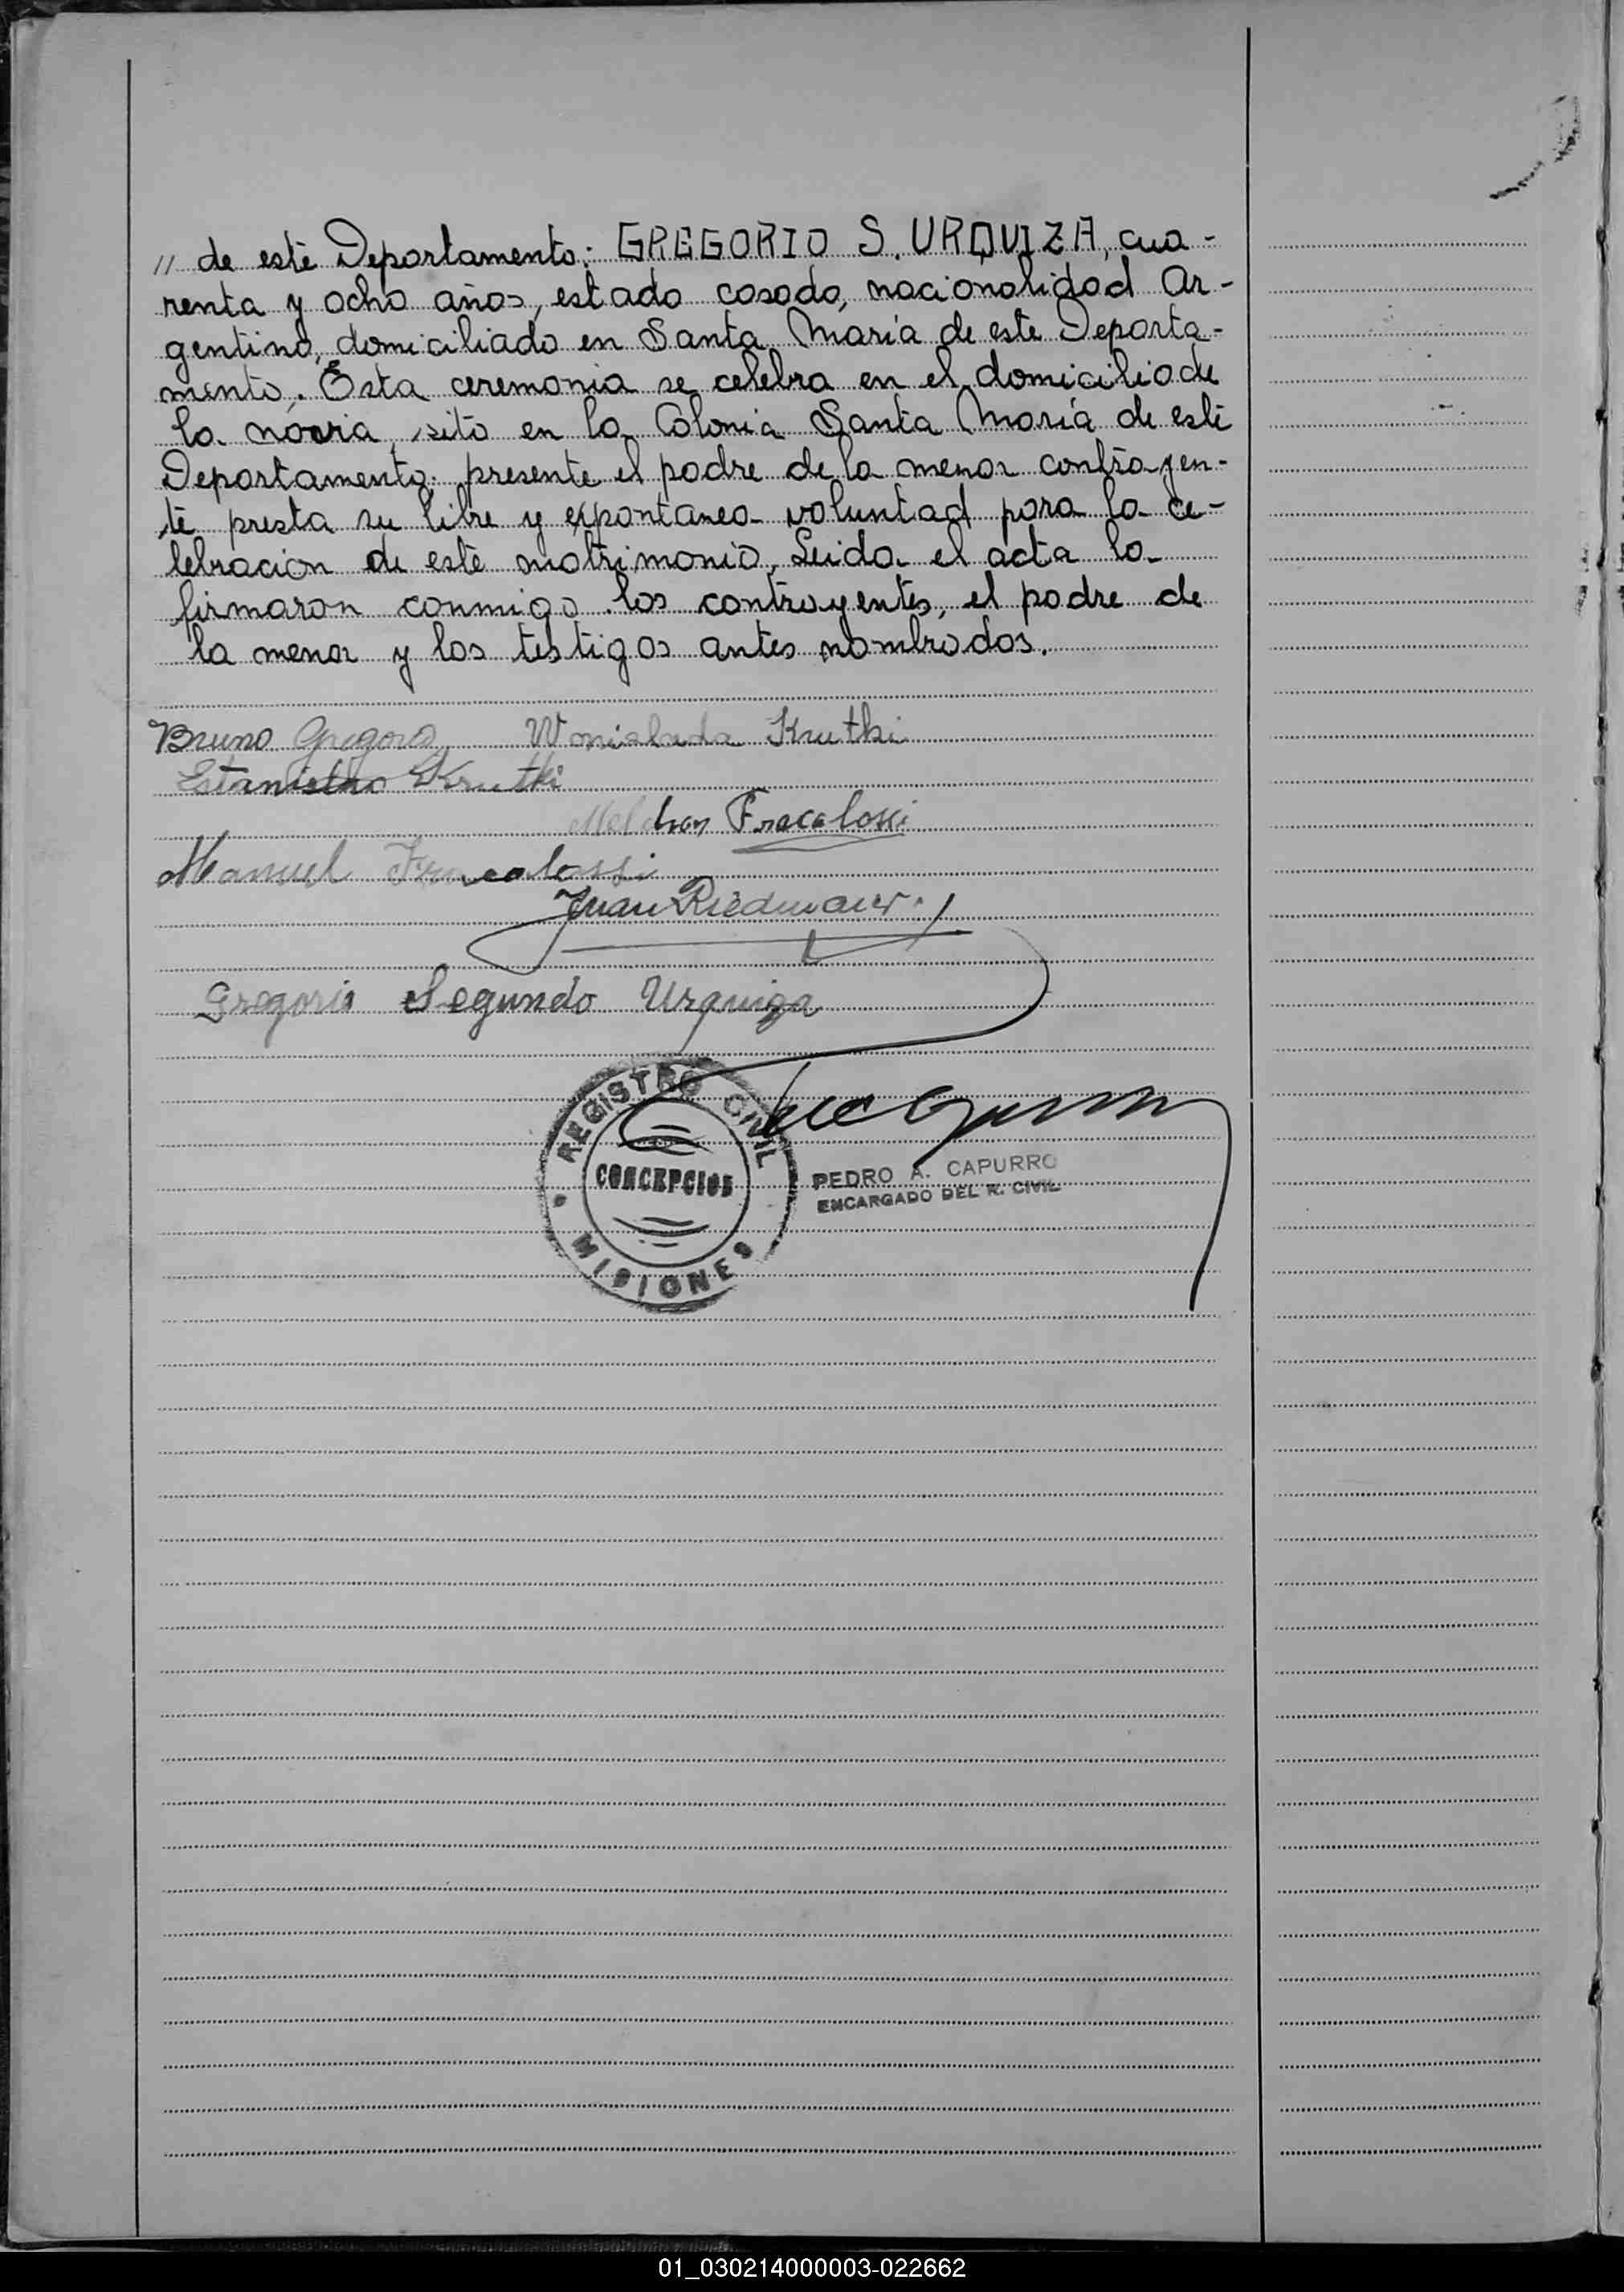 // de este Departamento: GREGORIO S. URQUIZA, cua-
renta y ocho años, estado casado, nacionalidad Ar-
gentino, domiciliado en Santa María de este Departa-
mento. Esta ceremonia se celebra en el domicilio de
la novia, sito en la Colonia Santa María de este
Departamento. presente el padre de la menor contrayen-
te presta su libre y expontanea voluntad para la ce-
lebración de este matrimonio. Leida el acta la
firmaron conmigo los contrayentes, el padre de
la menor y los testigos antes nombrados.
Bruno Krutki
Estanislao Krutki
Fracalossi
Manuel Fracalossi
Juan Riedmaier
Gregorio Segundo Urquiza
REGISTRO CIVIL
CONCEPCION
MISIONES
PEDRO A. CAPURRO
ENCARGADO DEL R. CIVIL
01_030214000003-022662